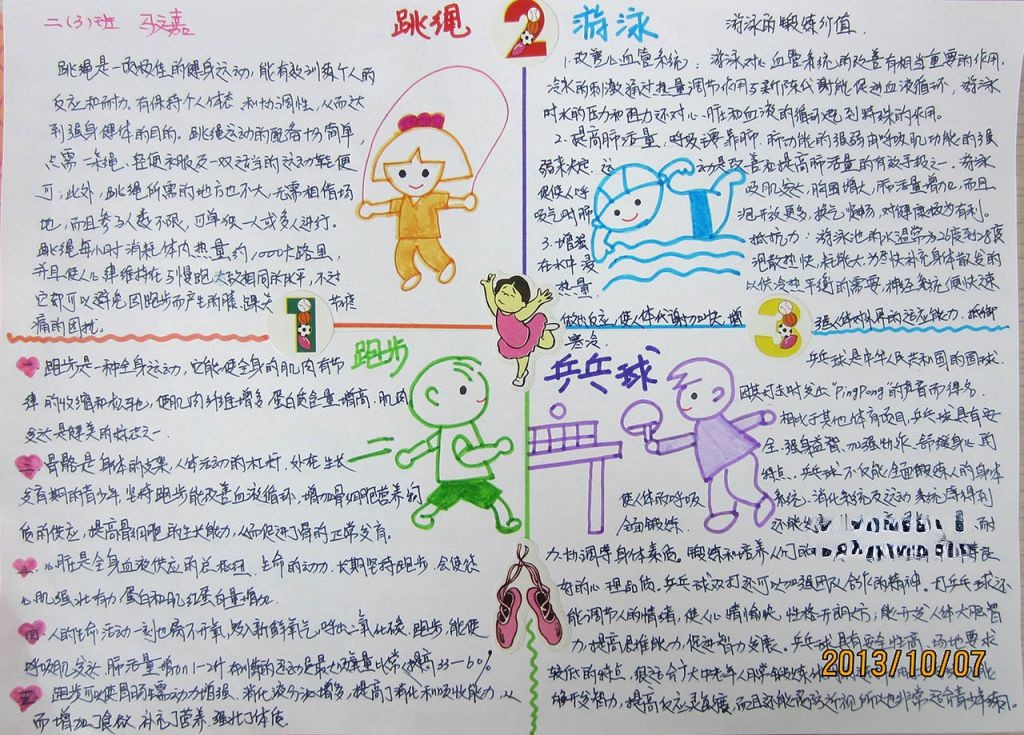 二(3)班 马文嘉
跳绳
2
游泳
游泳的锻炼价值.
跳绳是一项极佳的健身运动,能有效训练个人的
反应和耐力,有保持个人体态和协调性,从而达
到强身健体的目的。跳绳运动的配备十分简单,
只需一条绳、轻便衣服及一双适当的运动鞋便
可;此外,跳绳所需的地方也不大,无需租借场
地,而且参与人数不限,可单独一人或多人进行。
跳绳每小时消耗体内热量约1000卡路里,
并且使心律维持在与慢跑大致相同的水平,不过
它却可以避免因跑步而产生的膝、踝关节疼
痛的困扰。
1.改善心血管系统:游泳对心血管系统的改善有相当重要的作用.
冷水的刺激通过热量调节作用与新陈代谢能促进血液循环,游泳
时水的压力和阻力还对心脏和血液的循环起到特殊的作用。
2.提高肺活量,呼吸主要靠肺,肺功能的强弱由呼吸肌功能的强
弱来决定,运动是改善和提高肺活量的有效手段之一,游泳
促使人呼吸肌发达,胸围增大,肺活量增加,而且
吸气时肺泡开放更多,换气顺畅,对健康极为有利。
3.增强抵抗力:游泳池的水温常为26度到28度
在水中浸泡散热快,耗能大.为尽快补充身体散发的
热量,以供冷热平衡的需要,神经系统便快速
做出反应,使人体代谢加快,增强人体对外界的适应能力,抵御
寒冷.
1
3
跑步
一、跑步是一种全身运动,它能使全身的肌肉有节
律的收缩和松弛,使肌肉纤维增多,蛋白质含量增高.肌肉
发达是健美的标志之一.
二、骨骼是身体的支架,人体活动的杠杆.处在生长
发育期的青少年坚持跑步能改善血液循环,增加骨细胞营养物
质的供应,提高骨细胞的生长能力,从而促进骨的正常发育。
三、心脏是全身血液供应的总枢纽.生命的动力.长期坚持跑步.会使
心肌强壮有力,蛋白和肌红蛋白量增加.
四、人的生命活动一刻也离不开氧,吸入新鲜氧气,呼出二氧化碳.跑步,能使
呼吸肌发达.肺活量增加
五、跑步可使胃肠蠕动力增强、消化液分泌增多,提高了消化和吸收能力,从
而增加了食欲,补充了营养,强壮了体质.
乒乓球
乒乓球是中华人民共和国的国球.
因其打击时发出"PingPong"的声音而得名.
相比于其他体育项目,乒乓球具有安
全、强身益智、加强快乐、舒缓身心的
特点.乒乓球不仅能全面锻炼人的身体
使人体的呼吸系统、消化系统及运动系统等得到
全面锻炼.还能使
力、协调等身体素质。锻炼和培养人们的
好的心理品质.乒乓球双打还可以加强团队合作的精神。打乒乓球还
能调节人的情绪,使人心情愉快,性格开朗大方;能开发人体大脑智
力,提高思维能力,促进智力发展。乒乓球具有安全性高、场地要求
较低的特点.
够开发智力,提高反应灵敏度,而且还能预防近视
2013/10/07